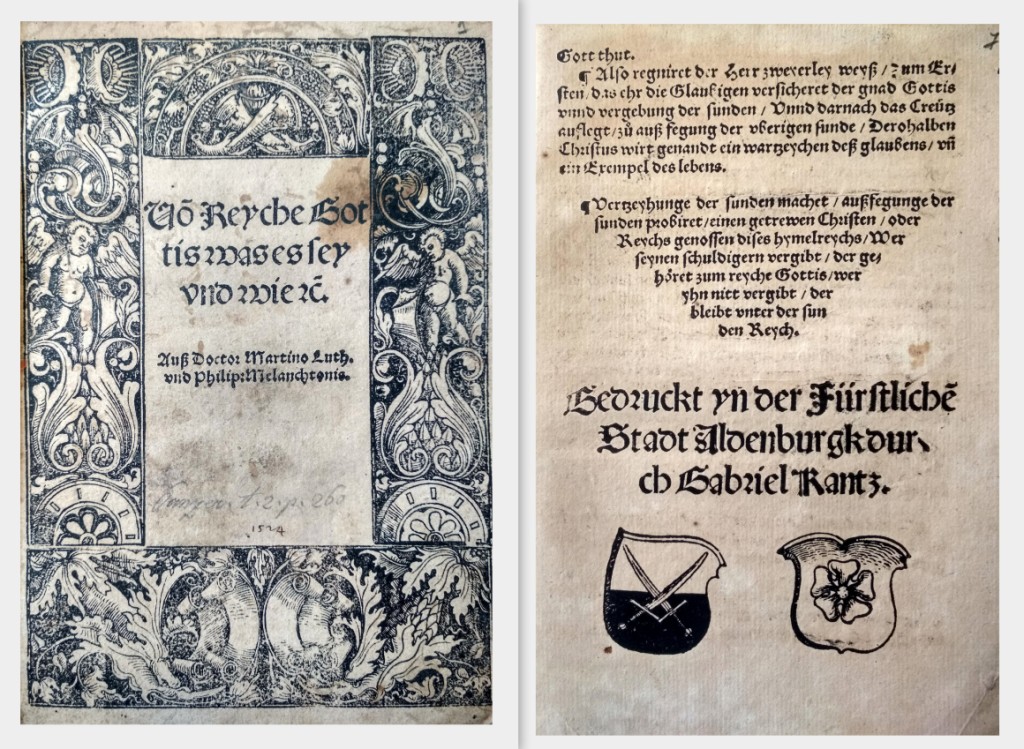 Võ Reyche Got
tis was es sey
vnd wie ꝛc̃.
Auß Doctor Martino Luth.
vnd Philip: Melanchtonis.
t. 2. p. 260
1524
Gott thut.
¶ Also regniret der Herr zweyerley weyß / Zum Er⸗
sten / das ehr die Glaubigen versicheret der gnad Gottis
vnnd vergebung der sunden / Vnnd darnach das Creütz
aufflegt / zů auß fegung der vberigen sunde / Derohalben
Christus wirt genandt ein wartzeychen deß glaubens / vñ
ein Exempel des lebens.
¶ Vertzeyhunge der sunden machet / außfegunge der
sunden probiret / einen getrewen Christen / oder
Reychs genossen dises hymelreychs / Wer
seynen schuldigern vergibt / der ge⸗
höret zum reyche Gottis / wer
yhn nitt vergibt / der
bleibt vnter der sun
den Reych.
Gedruckt yn der Fürstlichẽ
Stadt Aldenburgk dur⸗
ch Gabriel Kantz.